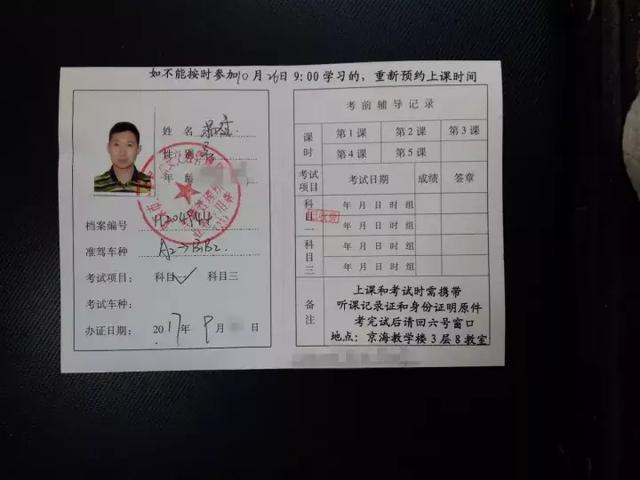 如不能按时参加10月26日9:00学习的,重新预约上课时间
姓名
性别 男
年龄
档案编号
准驾车种 A2→B1B2.
考试项目: 科目一✓ 科目三
考试车种:
办证日期: 2017年9月 日
考前辅导记录
课时 第1课 第2课 第3课
第4课 第5课
考试项目 考试日期 成绩 签章
科目一 年 月 日 时 组
年 月 日 时 组
科目三 年 月 日 时 组
年 月 日 时 组
备注
上课和考试时需携带
听课记录证和身份证明原件
考完试后请回六号窗口
地点:京海教学楼3层8教室